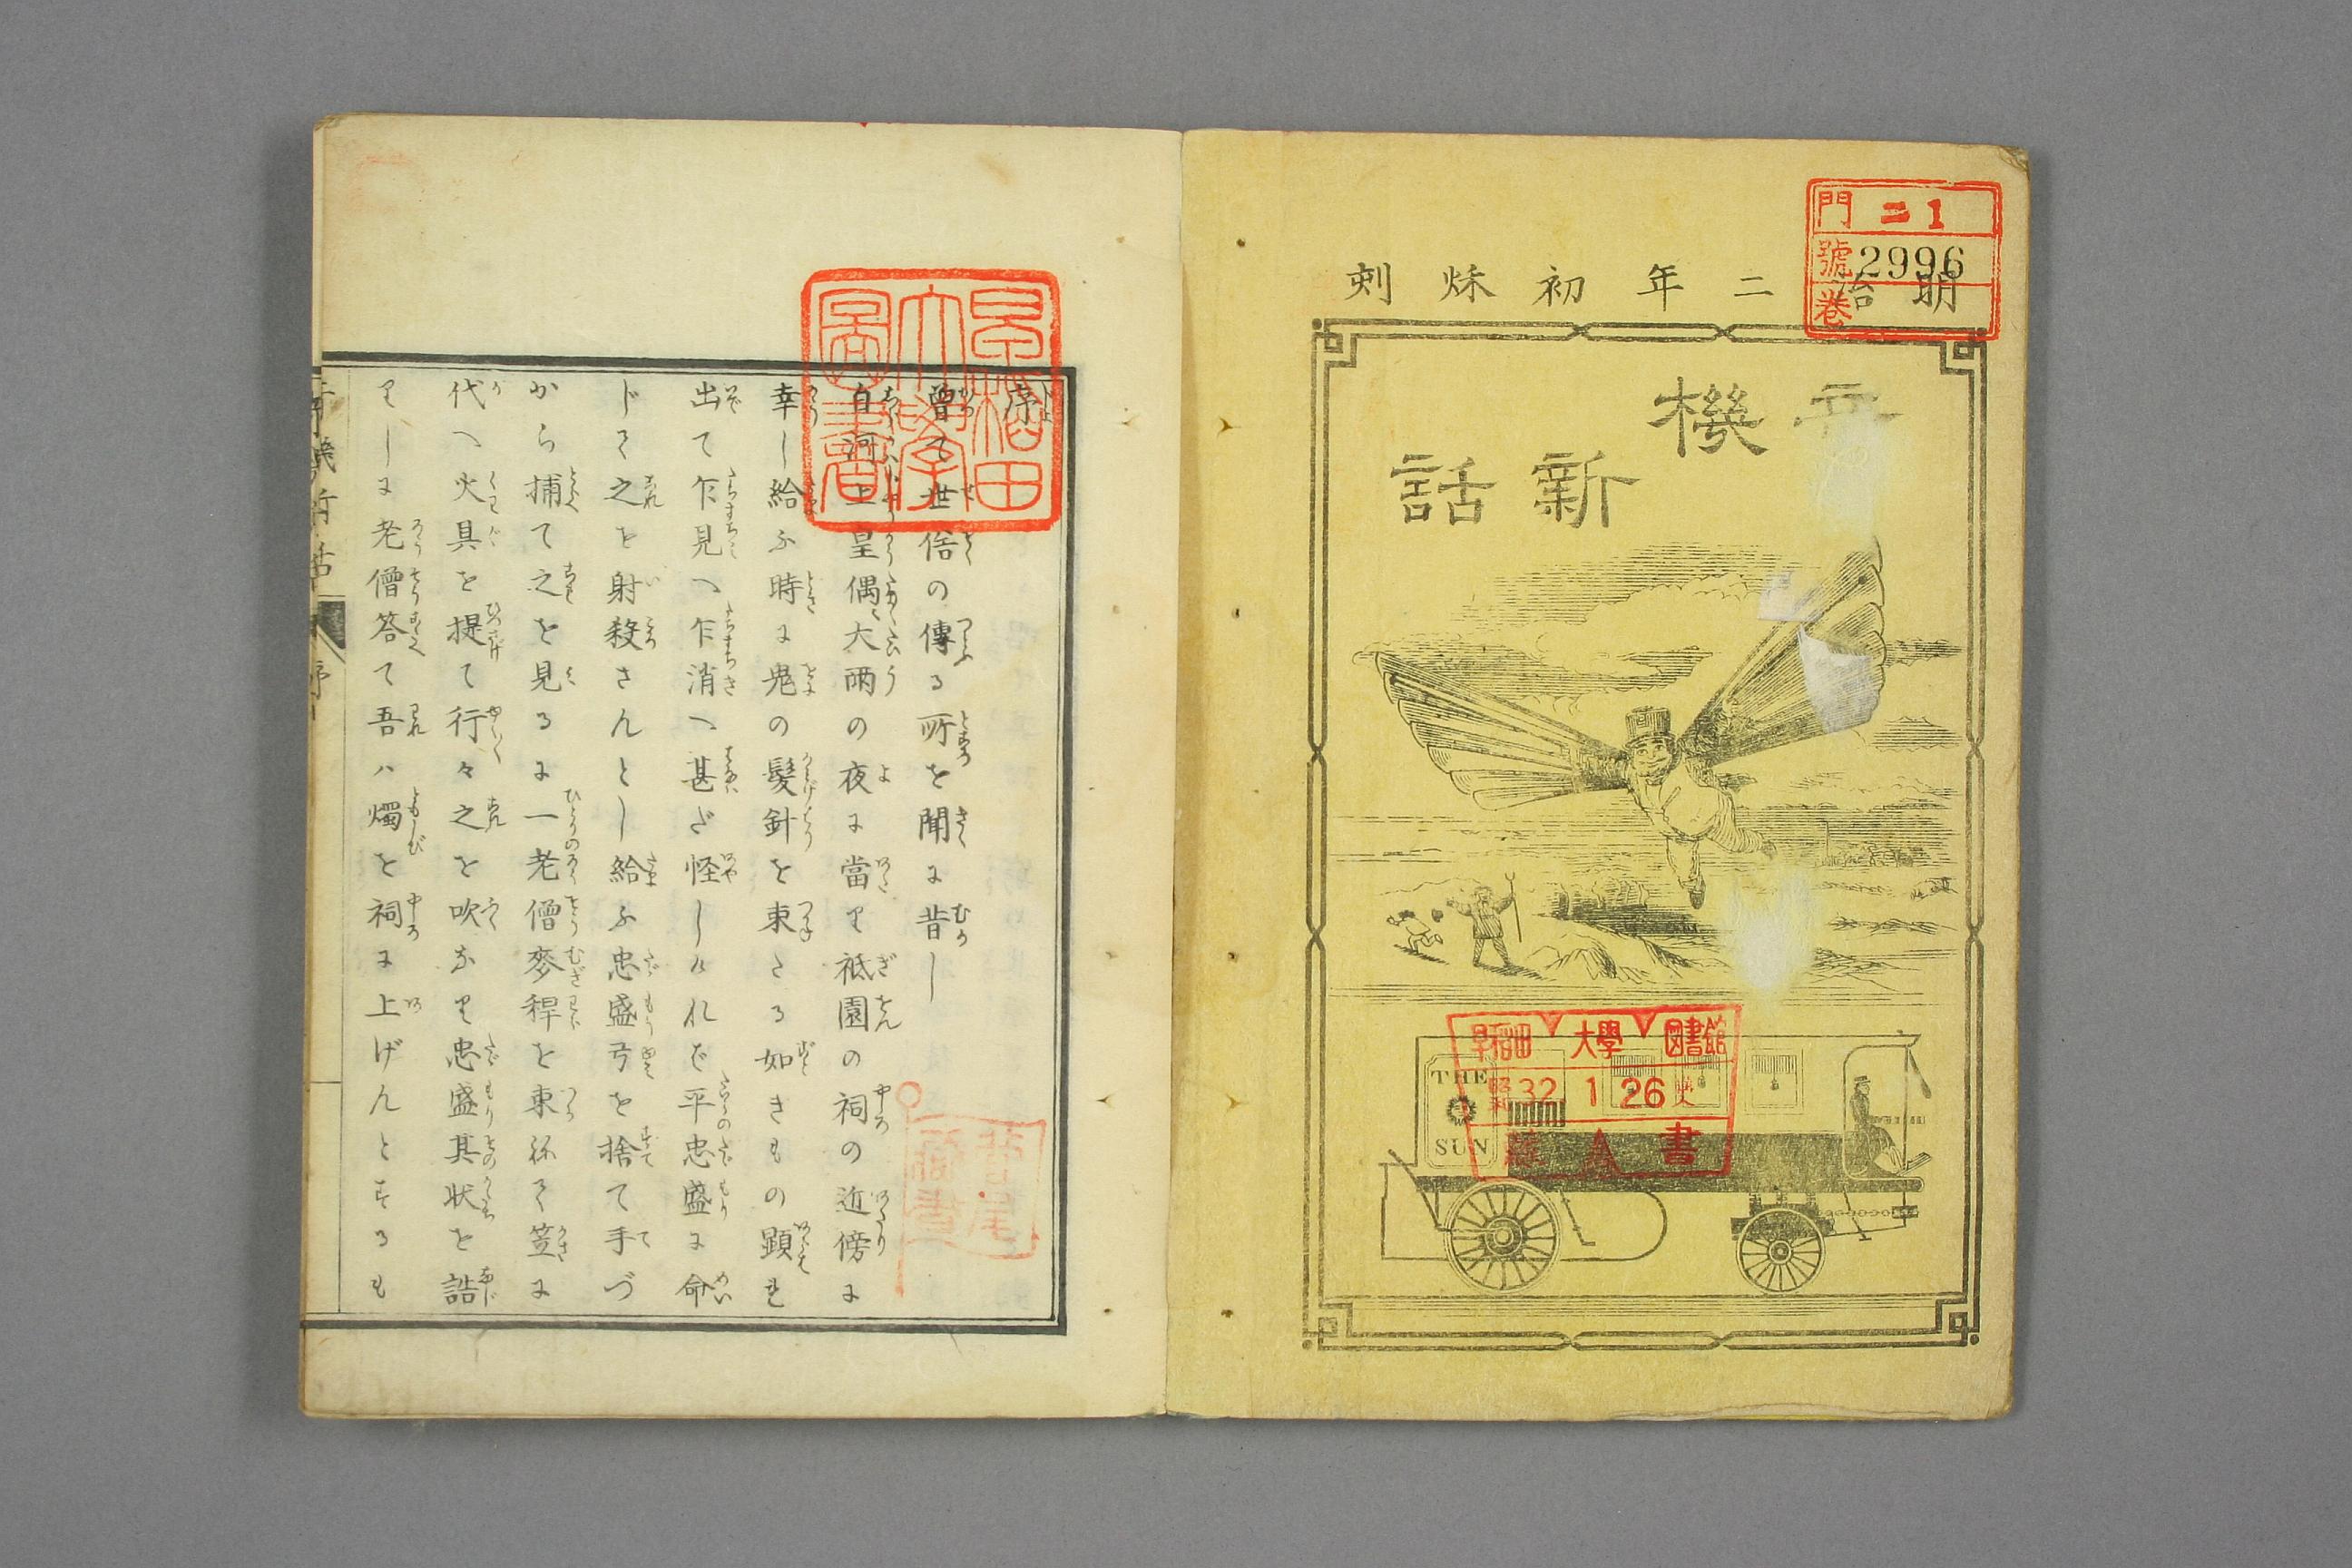 明治二年初秌刻
奇機
新話
門 ニ1
號 2996
卷
THE
SUN
早稲田大學図書館
昭和32.1.26
藏書
早稲田大學圖書
序
曽て世俗の傳る所を聞に昔し
白河上皇偶〻大雨の夜に當り祇園の祠の近傍に
幸し給ふ時に鬼の髮針を束たる如きもの顕も
出て乍見へ乍消へ甚だ怪しけれバ平忠盛に命
じて之を射殺さんとし給ふ忠盛弓を捨て手づ
から捕て之を見るに一老僧麥稈を束祢て笠に
代へ火具を提て行々之を吹なり忠盛其状を詰
りしに老僧答て吾ハ燭を祠に上げんとするも
奇機新話
序